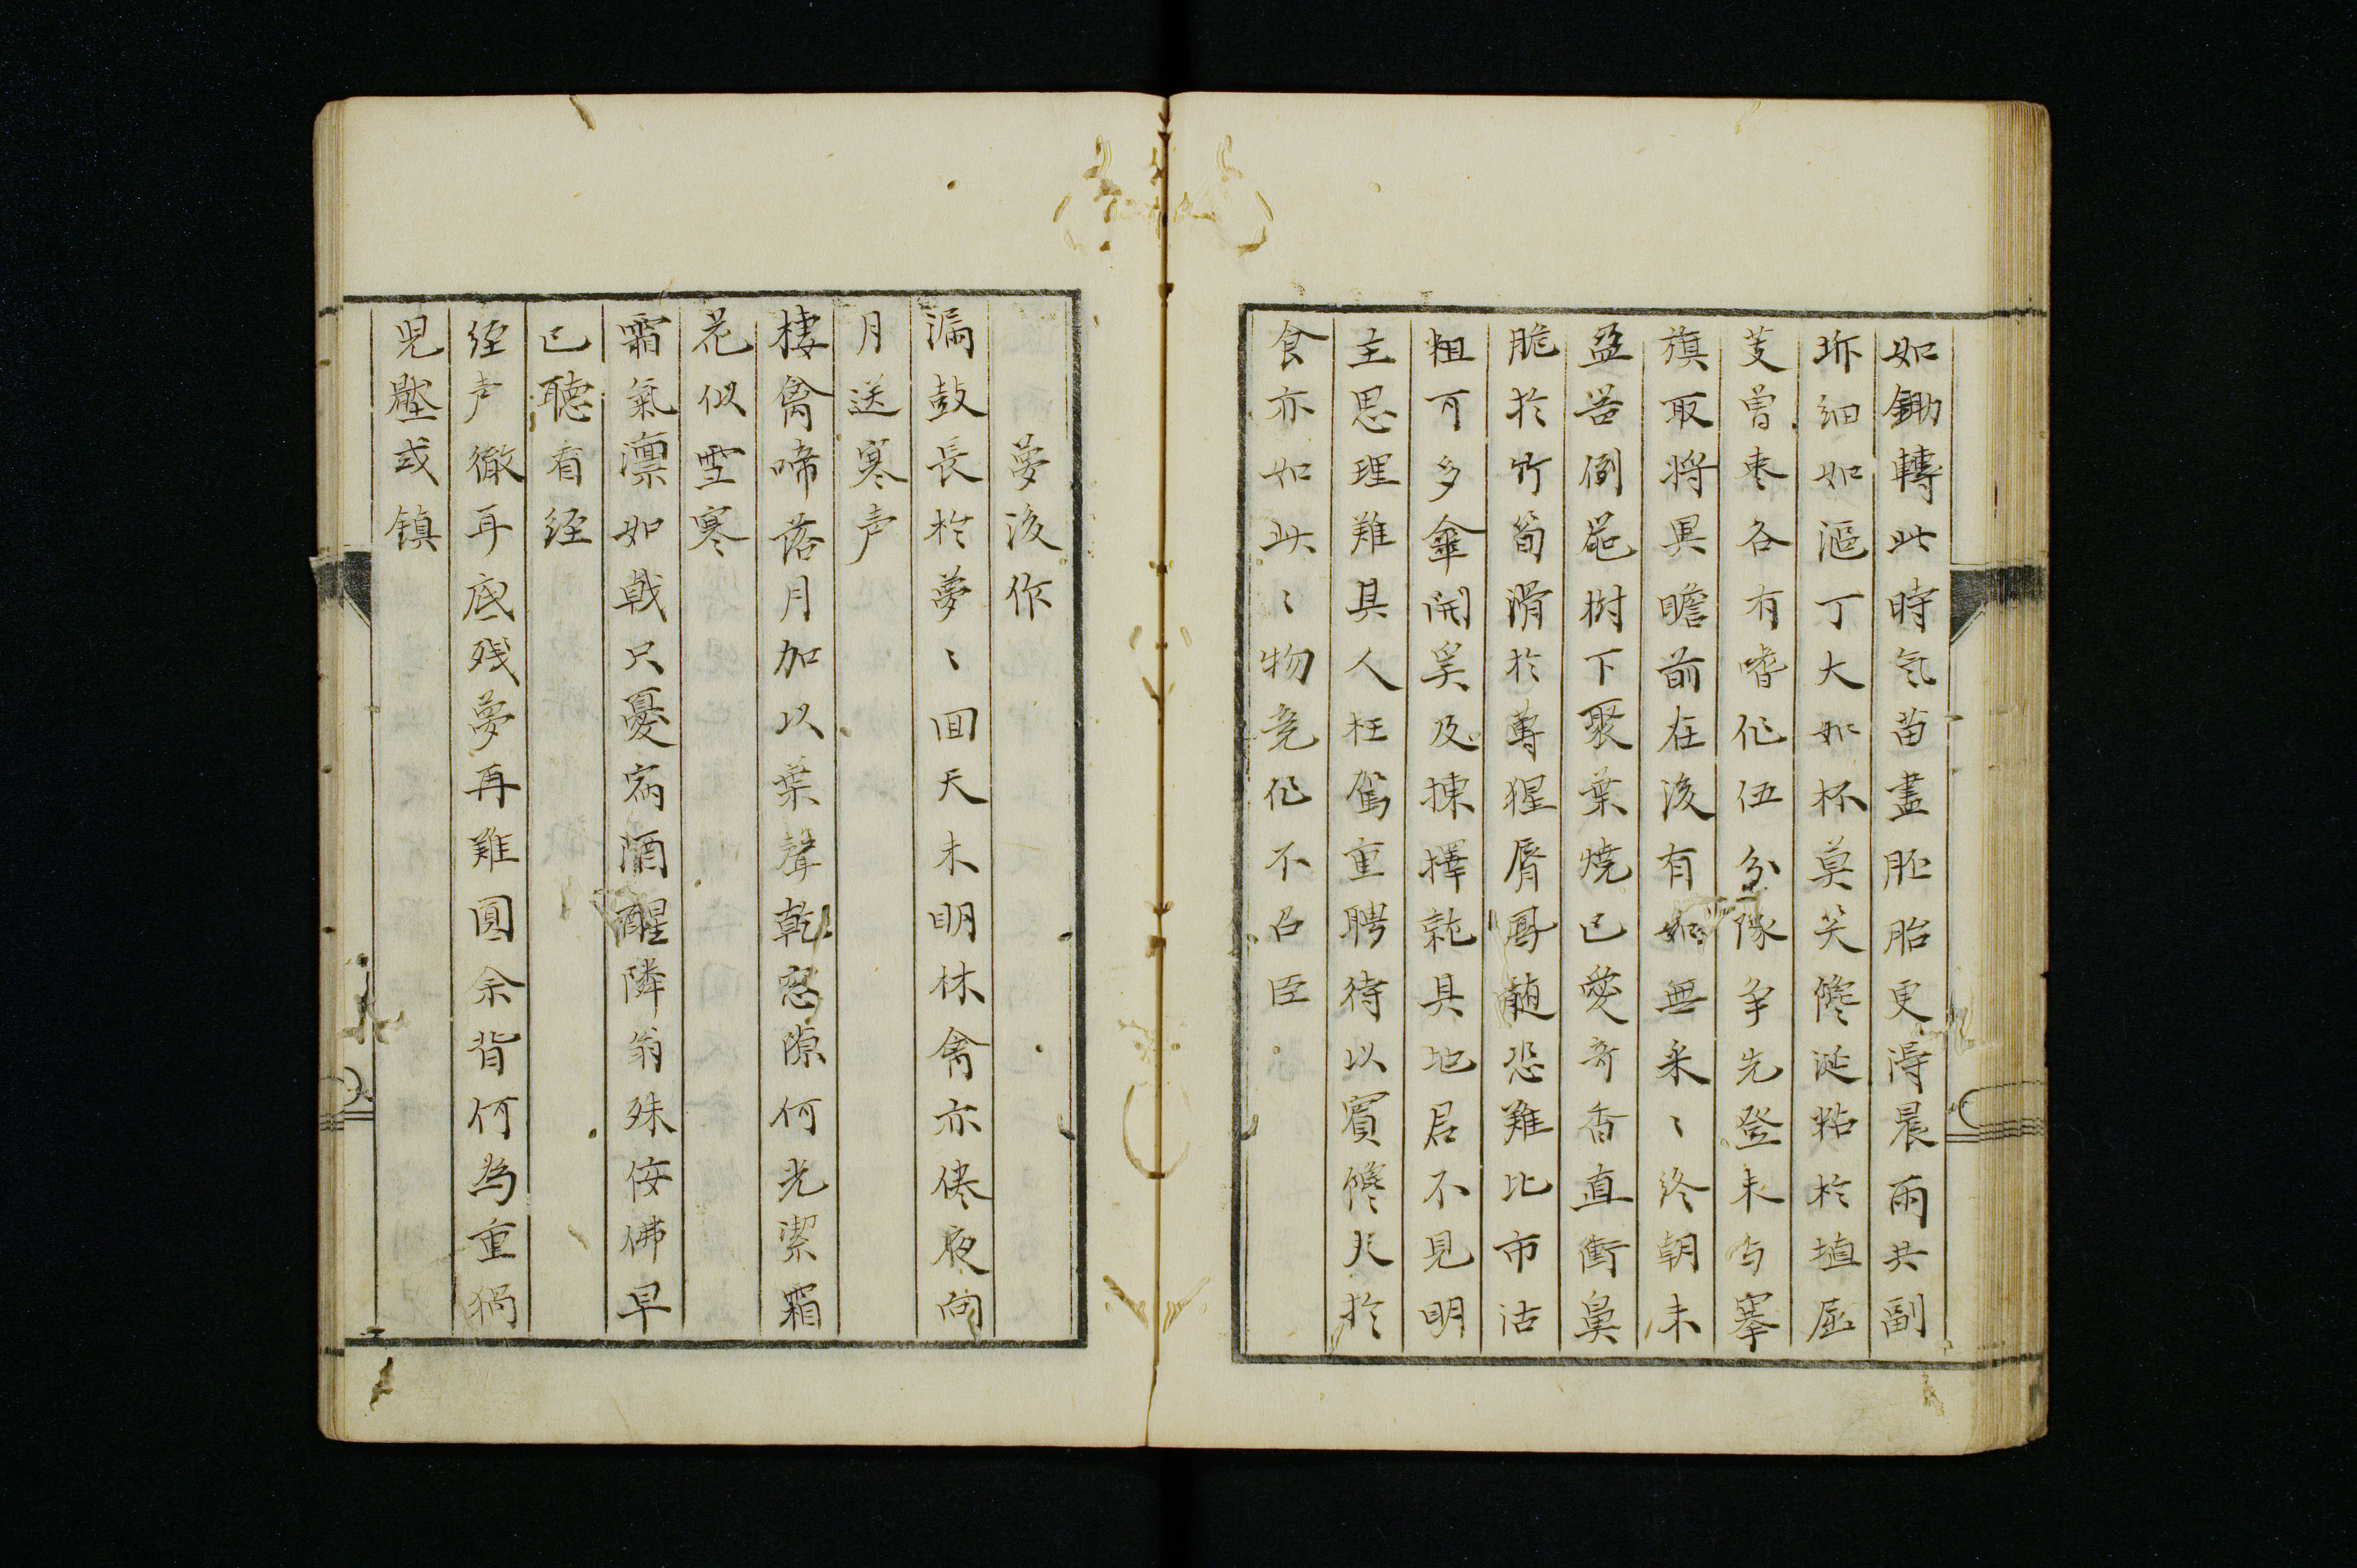 如鋤轉此時気苗盡胚胎更得晨雨共副
坼細如漚丁大如杯莫笑饞涎粘於埴屈
芰曾枣各有嗜作伍分隊争先登未与搴
旗取将異瞻前在後有如無采〻終朝未
盈筥倒罷樹下聚葉燒已愛奇香直衝鼻
脆於竹筍滑於蓴猩脣鳳髄恐難比市沽
粗可多傘開矣及揀擇就具地居不見明
主思理難具人枉駕重聘待以賓饞夫於
食亦如此〻物竟作不召臣
夢後作
漏鼓長於夢〻回天未明林禽亦倦夜向
月送寒声
棲禽啼落月加以葉聲乾窓隙何光潔霜
花似雪寒
霜氣凛如戟只憂病酒醒隣翁殊佞佛早
已聴看経
経声徹耳底残夢再難圓余背何為重猧
児壓或鎮